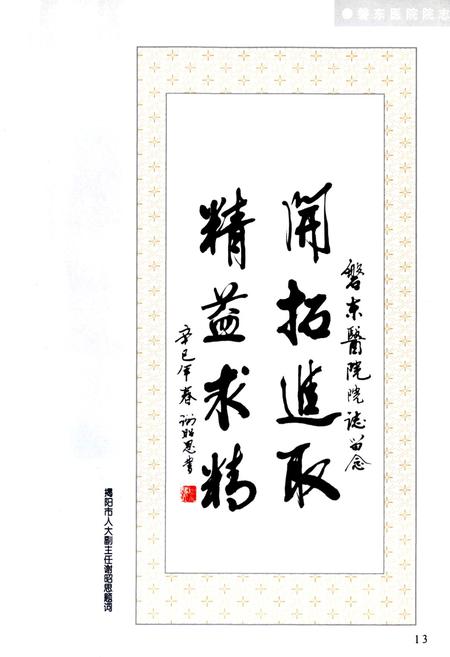 磐东医院院志
磐东醫院院誌留念
開拓進取
精益求精
辛巳年春 谢昭思書
揭阳市人大副主任谢昭思题词
13